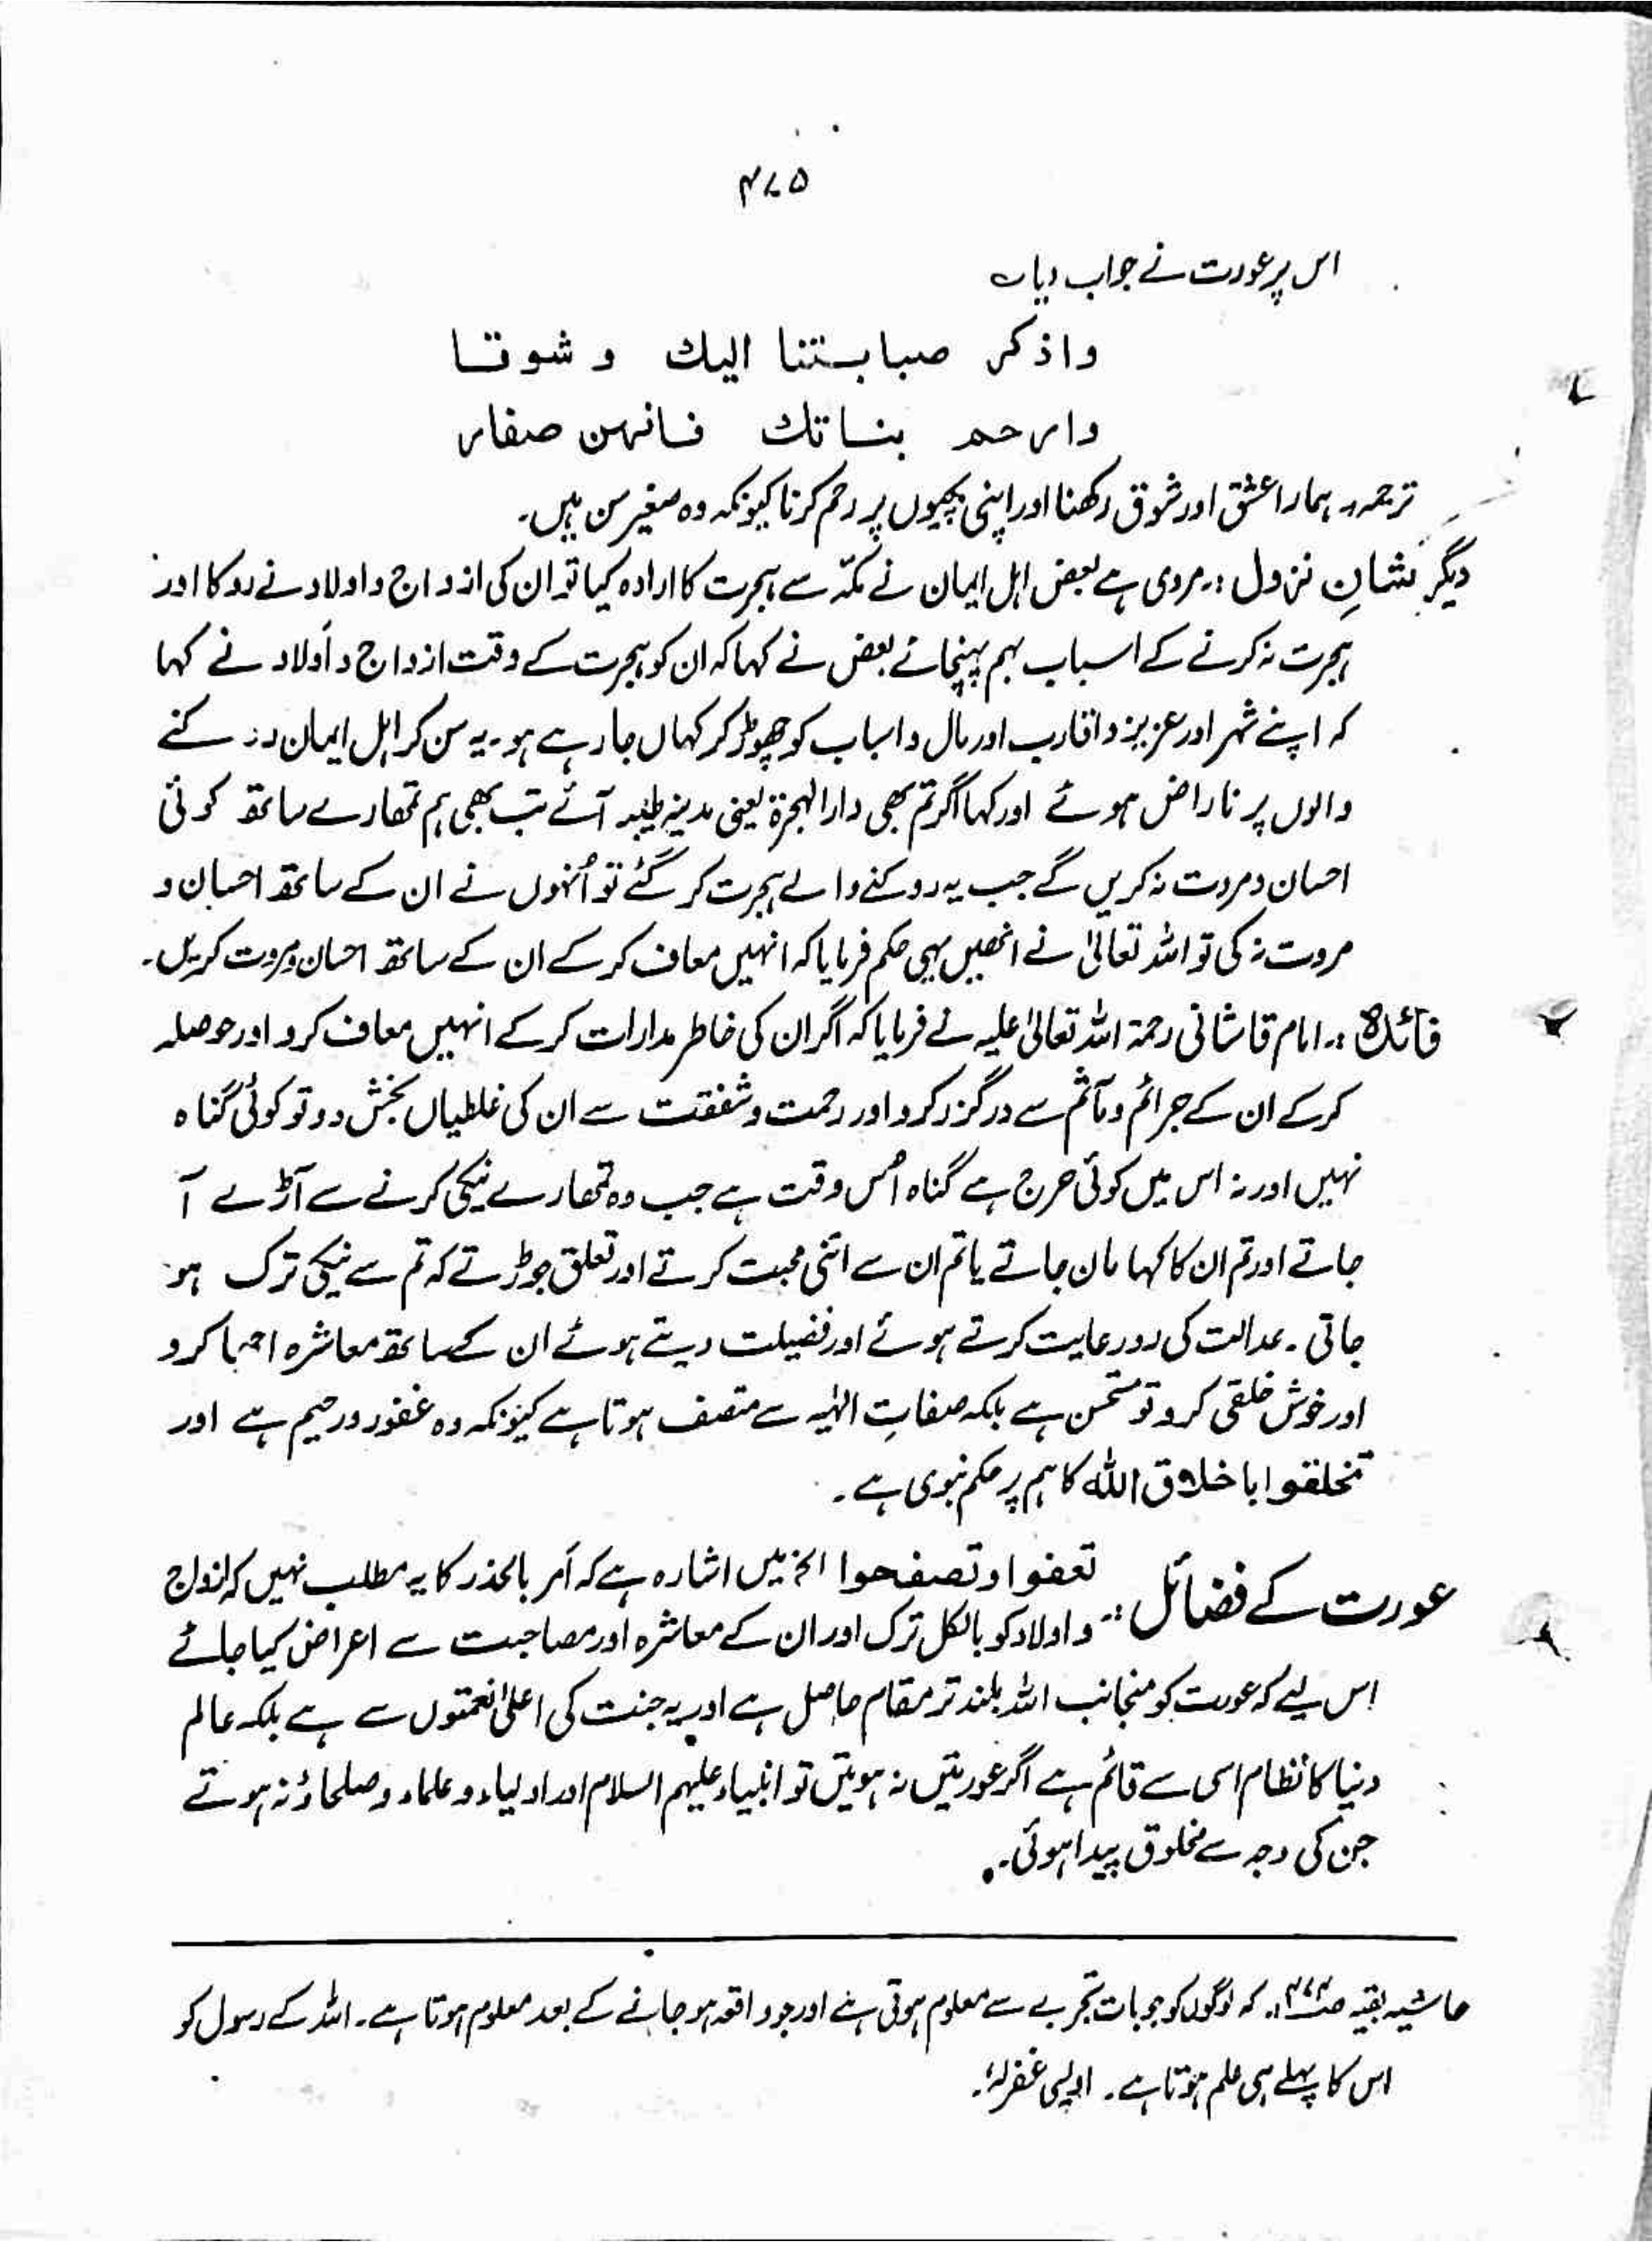 ۴۷۵
اس پر عورت نے جواب دیا ؎
واذکر صبابستنا الیک و شوقا
وارحم بناتک فانهن صغار
ترجمہ۔ ہمارا عشق اور شوق رکھنا اور اپنی بچیوں پر رحم کرنا کیونکہ وہ صغیر سن ہیں۔
دیگر شانِ نزول :۔ مروی ہے بعض اہل ایمان نے مکّہ سے ہجرت کا ارادہ کیا تو ان کی ازواج و اولاد نے روکا اور
ہجرت نہ کرنے کے اسباب بہم پہنچائے بعض نے کہا کہ ان کو ہجرت کے وقت ازواج و اَولاد نے کہا
کہ اپنے شہر اور عزیز و اقارب اور مال و اسباب کو چھوڑ کر کہاں جا رہے ہو۔ یہ سن کر اہل ایمان روکنے
والوں پر ناراض ہوئے اور کہا اگر تم بھی دار الہجرۃ یعنی مدینہ طیبہ آئے تب بھی ہم تمھارے ساتھ کوئی
احسان و مروت نہ کریں گے جب یہ روکنے والے ہجرت کر گئے تو اُنہوں نے ان کے ساتھ احسان و
مروت نہ کی تو اللہ تعالیٰ نے انھیں یہی حکم فرمایا کہ انہیں معاف کر کے ان کے ساتھ احسان و مروت کریں۔
فائدہ :۔ امام قاشانی رحمۃ اللہ تعالیٰ علیہ نے فرمایا کہ اگر ان کی خاطر مدارات کر کے انہیں معاف کرو اور حوصلہ
کر کے ان کے جرائم و مآثم سے درگزر کرو اور رحمت و شفقت سے ان کی غلطیاں بخش دو تو کوئی گناہ
نہیں اور نہ اس میں کوئی حرج ہے گناہ اُس وقت ہے جب وہ تمھارے نیکی کرنے سے آڑے آ
جاتے اور تم ان کا کہا مان جاتے یا تم ان سے اتنی محبت کرتے اور تعلق جوڑتے کہ تم سے نیکی ترک ہو
جاتی۔ عدالت کی رو رعایت کرتے ہوئے اور فضیلت دیتے ہوئے ان کے ساتھ معاشرہ اچھا کرو
اور خوش خلقی کرو تو مستحسن ہے بلکہ صفاتِ الہٰیہ سے متصف ہوتا ہے کیونکہ وہ غفور و رحیم ہے اور
تخلقوا باخلاق اللہ کا ہم پر حکم نبوی ہے۔
عورت کے فضائل :۔ تعفوا و تصفحوا الخ میں اشارہ ہے کہ اَمر بالحذر کا یہ مطلب نہیں کہ ازواج
و اولاد کو بالکل ترک اور ان کے معاشرہ اور مصاحبت سے اعراض کیا جائے
اس لیے کہ عورت کو منجانب اللہ بلند تر مقام حاصل ہے اور یہ جنت کی اعلیٰ نعمتوں سے ہے بلکہ عالم
دنیا کا نظام اسی سے قائم ہے اگر عورتیں نہ ہوتیں تو انبیاء علیہم السلام اور اولیاء و علماء و صلحاؤ نہ ہوتے
جن کی وجہ سے مخلوق پیدا ہوئی۔
حاشیہ بقیہ ص۴۷۴:۔ کہ لوگوں کو جو بات تجربے سے معلوم ہوتی ہے اور جو واقعہ ہو جانے کے بعد معلوم ہوتا ہے۔ اللہ کے رسول کو
اس کا پہلے ہی علم ہوتا ہے۔ اویسی غفرلہٗ۔